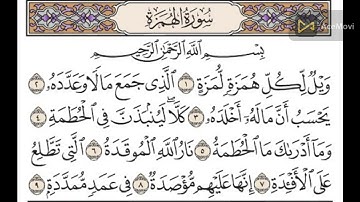 سُورَةُ الْهُمَزَةِ
AceMovi
بِسْمِ اللَّهِ الرَّحْمَٰنِ الرَّحِيمِ
وَيْلٌ لِّكُلِّ هُمَزَةٍ لُّمَزَةٍ ١ الَّذِي جَمَعَ مَالًا وَعَدَّدَهُ ٢
يَحْسَبُ أَنَّ مَالَهُ أَخْلَدَهُ ٣ كَلَّا لَيُنبَذَنَّ فِي الْحُطَمَةِ ٤
وَمَا أَدْرَاكَ مَا الْحُطَمَةُ ٥ نَارُ اللَّهِ الْمُوقَدَةُ ٦ الَّتِي تَطَّلِعُ
عَلَى الْأَفْئِدَةِ ٧ إِنَّهَا عَلَيْهِم مُّؤْصَدَةٌ ٨ فِي عَمَدٍ مُّمَدَّدَةٍ ٩